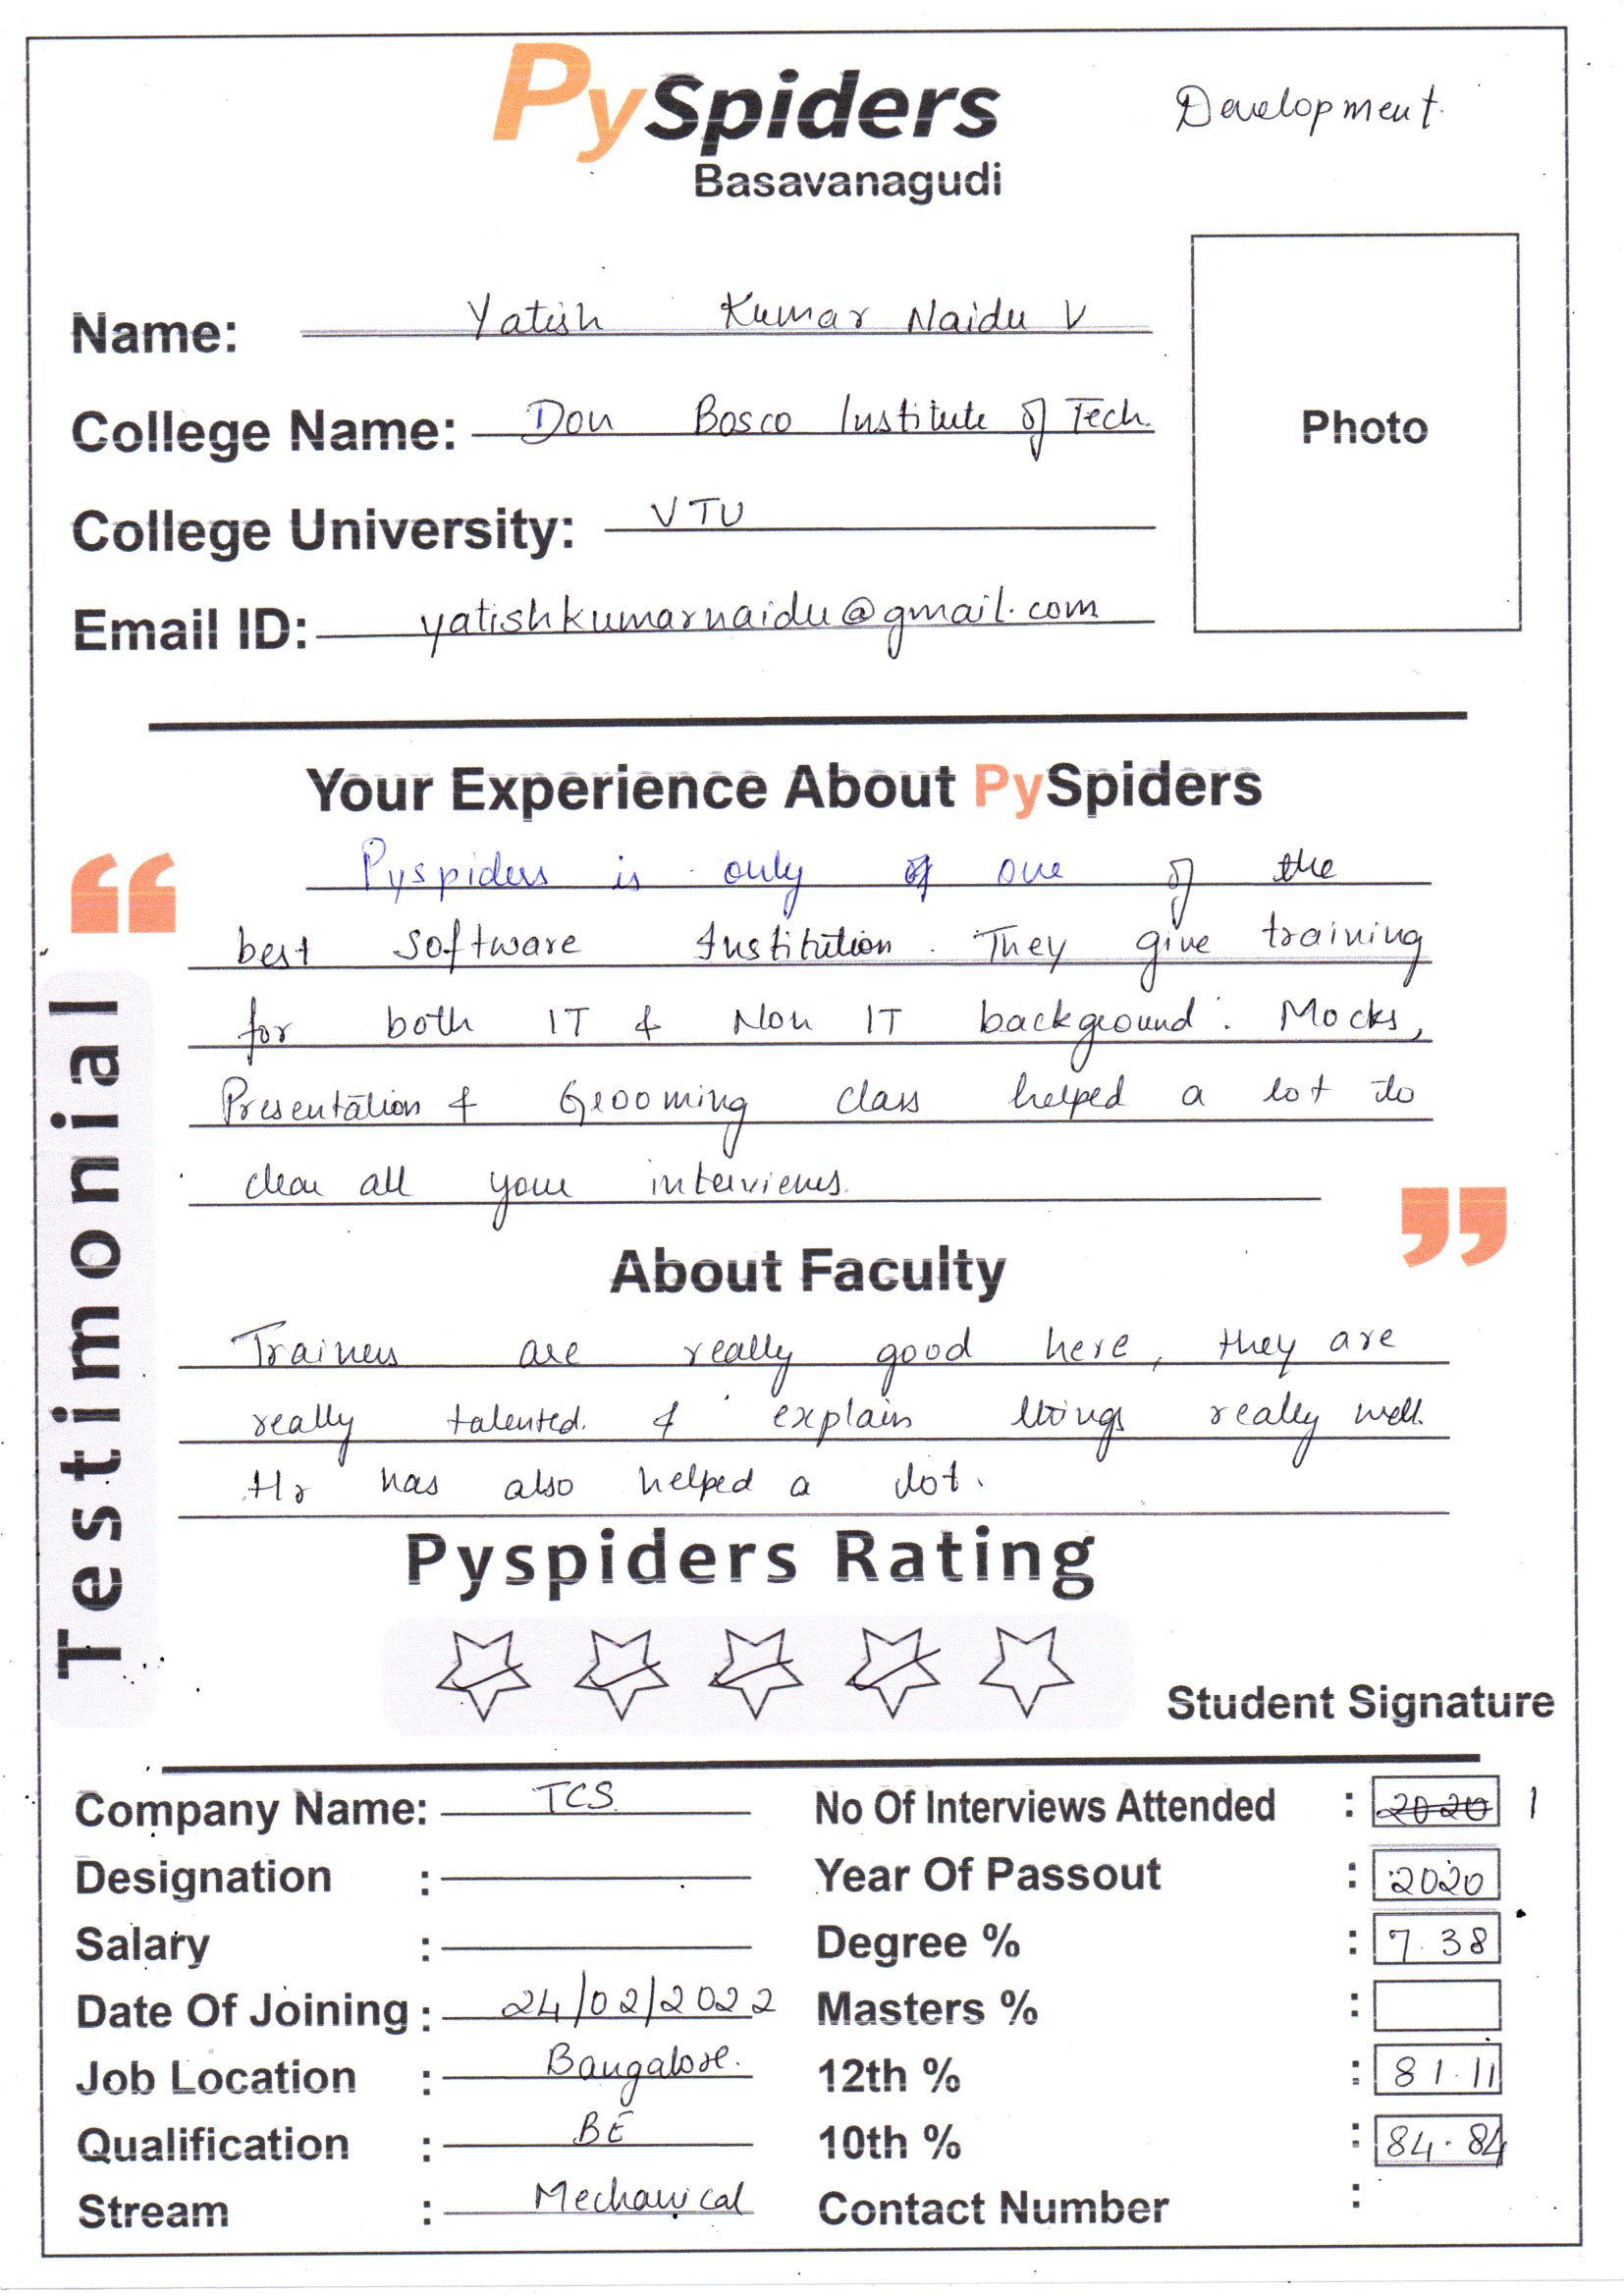 PySpiders
Development.
Basavanagudi
Name: Yatish Kumar Naidu V
College Name: Don Bosco Institute of Tech.
Photo
College University: VTU
Email ID: yatishkumarnaidu@gmail.com
Your Experience About PySpiders
Pyspiders is only of one of the
best software Institution. They give training
for both IT & Non IT background. Mocks,
Presentation & Grooming class helped a lot to
clear all your interviews.
About Faculty
Trainers are really good here, they are
really talented. & explain things really well.
Hr has also helped a lot.
Testimonial
Pyspiders Rating
Student Signature
Company Name: TCS
No Of Interviews Attended : 2020 1
Designation :
Year Of Passout : 2020
Salary :
Degree % : 7.38
Date Of Joining : 24/02/2022
Masters % :
Job Location : Bangalore.
12th % : 81.11
Qualification : BE
10th % : 84.84
Stream : Mechanical
Contact Number :